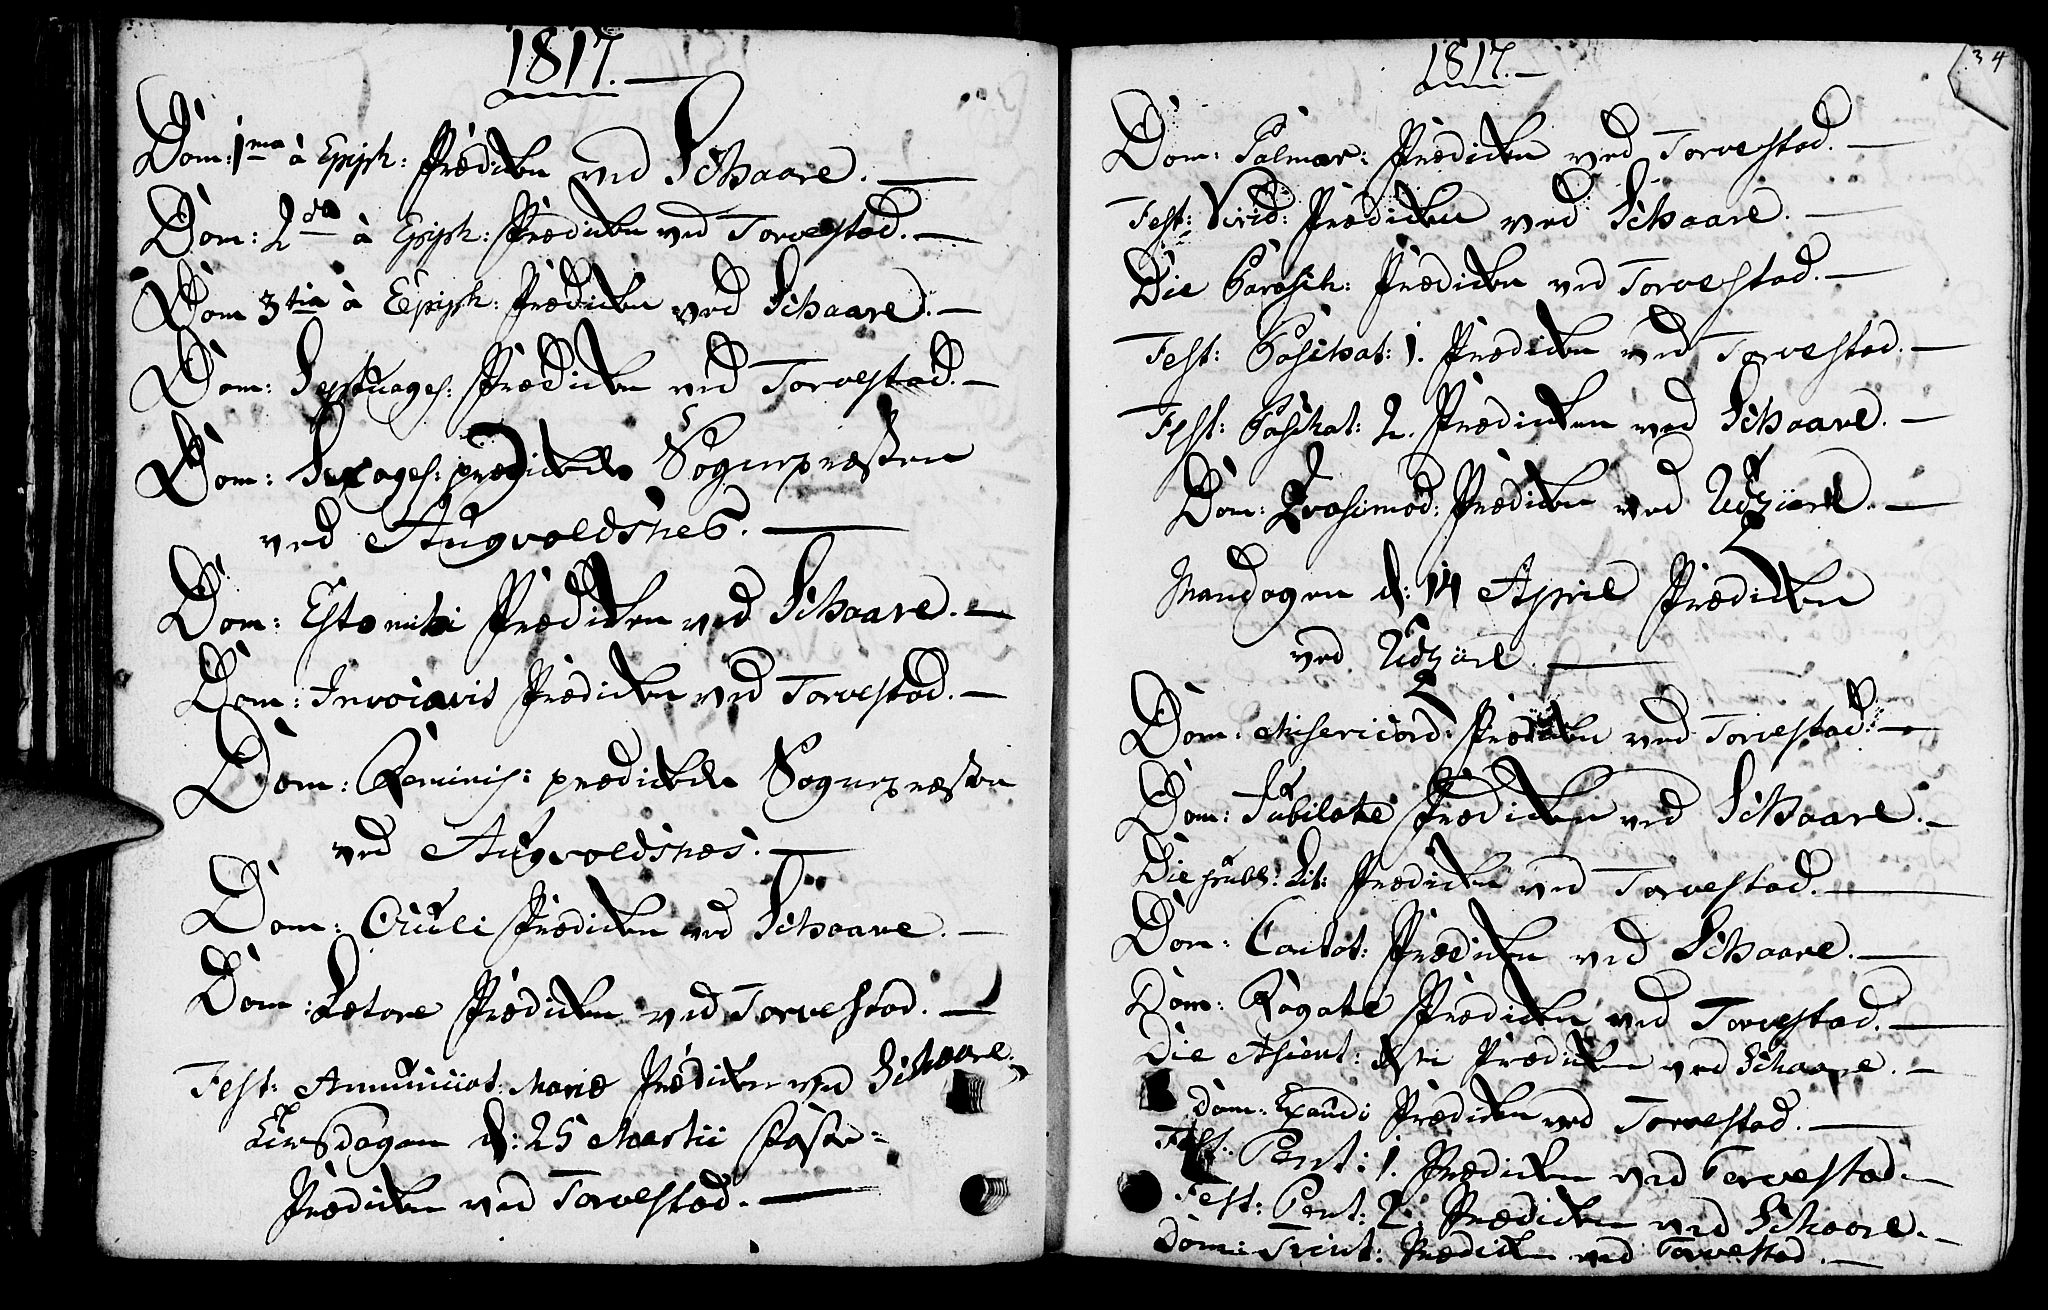 1817.
Dom: 1ma à Epiph: Prædicken ved Schaare.
Dom: 2da à Epiph: Prædicken ved Torvestad.
Dom 3tia à Epiph: Prædicken ved Schaare.
Dom: Septuages: Prædicken ved Torvestad.
Dom: Sexages: prædickede Sognepræsten
ved Augvoldsnes.
Dom: Estomihi Prædicken ved Schaare.
Dom: Invocavit Prædicken ved Torvestad.
Dom: Reminis: prædickede Sognepræsten
ved Augvoldsnes.
Dom: Oculi Prædicken ved Schaare.
Dom: Lætare Prædicken ved Torvestad.
Fest: Annunciat: Mariæ Prædicken ved Schaare.
d: 25 Martii Faste-
Prædicken ved Torvestad.
1817.
34
Dom: Palmar: Prædicken ved Torvestad.
Fest: Virid: Prædicken ved Schaare.
Die Parasch: Prædicken ved Torvestad.
Fest: Paschat: 1. Prædicken ved Torvestad.
Fest: Paschat: 2. Prædicken ved Schaare.
Dom: Qvasimod: Prædicken ved Udziire.
Mandagen d: 14 April Prædicken
ved Udziire.
Dom: Misericord: Prædicken ved Torvestad.
Dom: Jubilate Prædicken ved Schaare.
Die publ: Lit: Prædicken ved Torvestad.
Dom: Cantat: Prædicken ved Schaare.
Dom: Rogate Prædicken ved Torvestad.
Die Ascent: Prædicken ved Schaare.
Dom: Exaudi Prædicken ved Torvestad.
Fest: Pent: 1. Prædicken ved Torvestad.
Fest: Pent: 2. Prædicken ved Schaare.
Dom: Trint: Prædicken ved Torvestad.